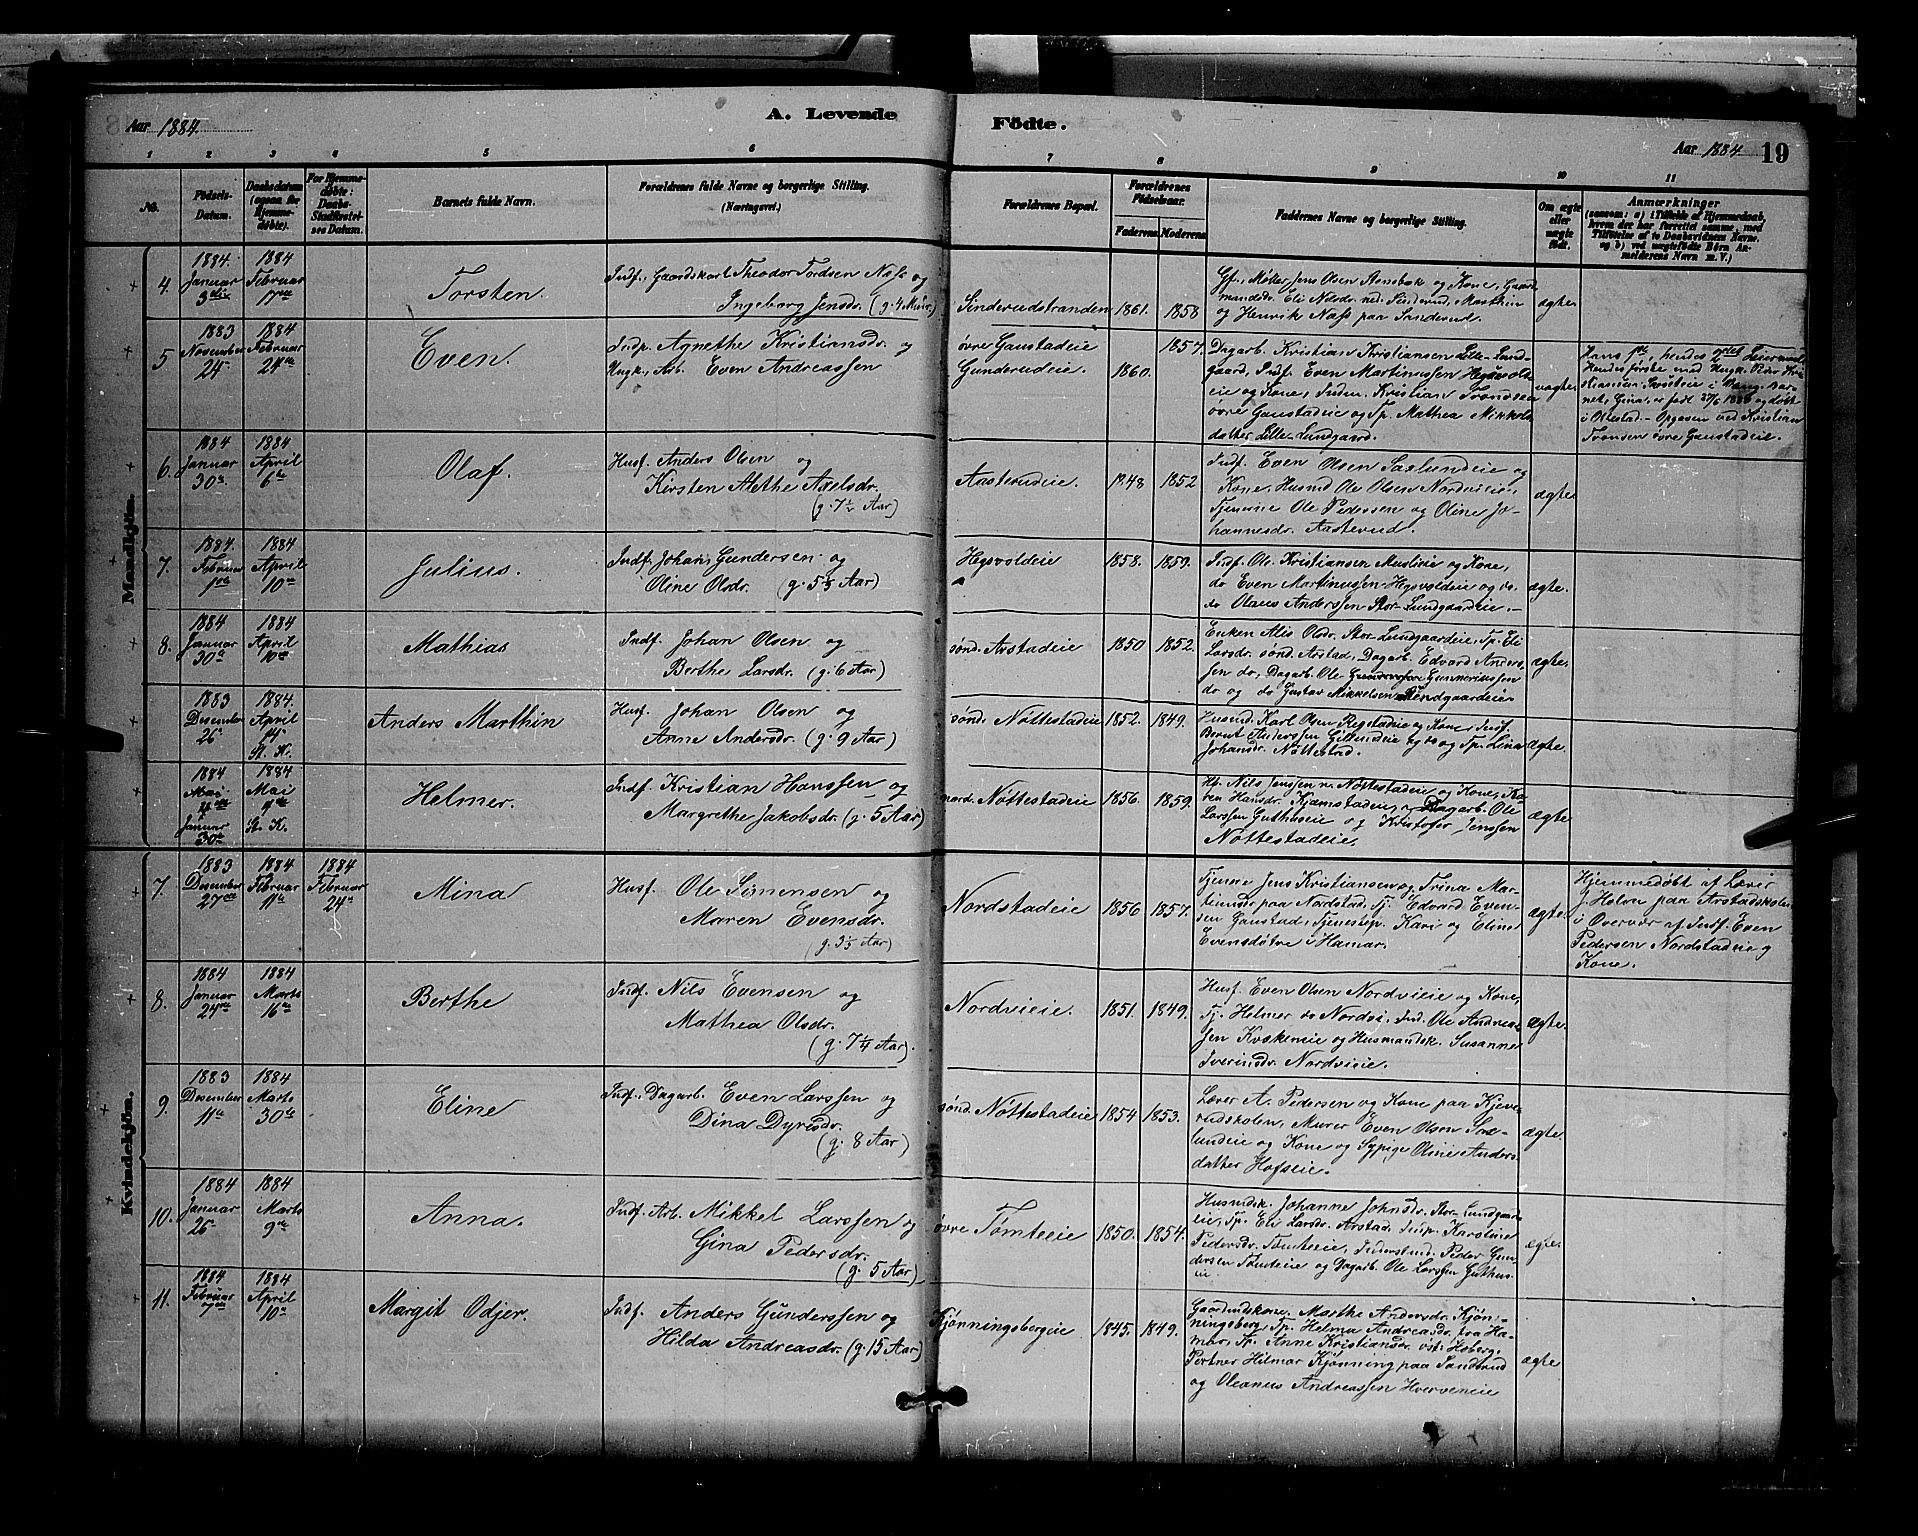 Aar 1884.
A. Levende Födte.
Aar 1884 19
1 2 3 4 5 6 7 8 9 10 11
No.
Födsels-
Datum.
Daabsdatum
(ogsaa for
Hjemme-
döbte).
For Hjemme-
döbte:
Daabs-
Stadfæstel-
ses Datum.
Barnets fulde Navn.
Forældrenes fulde Navne og borgerlige Stilling.
(Næringsvei.)
Forældrenes Bopæl.
Forældrenes
Födselsaar.
Faderens. Moderens.
Faddernes Navne og borgerlige Stilling.
Om ægte
eller
uægte
födt.
Anmærkninger
(saasom: a) i Tilfælde af Hjemmedaab,
hvem der har forrettet samme, med
Tilföielse af to Daabsvidners Navne,
og b) ved uægtefödte Börn An-
melderens Navn m. V.)
Mandkjön.
4.
1884
Januar
3die
1884
Februar
17de
Torsten.
Indf. Gaardskarl Theodor Tordsen Næss og
Ingeborg Jensdr. (g. 4 Mdnr.)
Sinderudstranden
1861. 1858
Gfr. Møller Jens Olsen Stensbak og Kone, Gaard-
mandsdr. Eli Nilsdr. nd. Sinderud, Marthin
og Henrik Næss paa Sanderud.
ægte
5
1883
November
24de
1884
Februar
24de
Even.
Indp. Agnethe Kristiansdr. og
Ungk. Arb. Even Andreassen
øvre Gaustadeie
Gunderudeie.
1860. 1857.
Dagarb. Kristian Kristiansen Lille-Lund-
gaard, Indf. Even Martinussen Hegsvold-
eie og Kone, Inderst. Kristian Trondsen
øvre Gaustadeie og Tp. Mathea Mikkels-
datter Lille-Lundgaard.
uægte.
Hans 1ste, hendes 2det Leiermaal.
Hendes første med Ungk. Peder Kri-
i Ottestad. - Opgaven ved Kristian
Tronsen øvre Gaustadeie.
6.
1884
Januar
30te
1884
April
6te
Olaf.
Husf. Anders Olsen og
Kirsten Alethe Axelsdr.
(g. 7½ Aar)
Aasterudeie.
1848 1852
Indf. Even Olsen Saxlundeie og
Kone, Husmd Ole Olsen Nordvieie,
Tjenere Ole Pedersen og Oline Jo-
hannesdr. Aasterud.
ægte
7.
1884.
Februar
1ste
1884
April
10de
Julius.
Indf. Johan Gundersen og
Oline Olsdr. (g. 5½ Aar)
Hegsvoldeie
1858. 1859.
Indf. Ole Kristiansen Muslieie og Kone,
do Even Martinussen Hegsvoldeie og do.
do Olaus Anderssen Stor-Lundgaardeie.
ægte.
8.
1884
Januar
30te
1884
April
10de
Mathias
Indf. Johan Olsen og
Berthe Larsdr. (g. 6 Aar)
sønd. Arstadeie
1850 1852.
Enken Alis Olsdr. Stor-Lundgaardeie, Tp. Eli
Larsdr. sønd. Arstad, Dagarb. Edvard Anders-
sen do, Dagarb. Ole Gunneriussen
do og do Gustav Mikkelsen Lundgaardeie.
ægte.
1883
Desember
26de
1884.
April
14de
St. K.
Anders Marthin
Husf. Johan Olsen og
Anne Andersdr. (g. 9 Aar)
sønd. Nøttestadeie
1852. 1849.
Husmd. Karl Olsen Regstadeie og Kone, Indf.
Bernt Anderssen Gillundeie og do og Tp. Lina
Johansdr. Nøttestad.
ægte.
1884
Mai
Januar
30te
1884
Mai
St. K.
Helmer.
Indf. Kristian Hanssen og
Margrethe Jakobsdr. (g. 5 Aar)
nord. Nøttestadeie
1856. 1859.
Hf. Nils Jenssen n. Nøttestadeie og Kone, Ka-
ren Hansdr. Kjæmstadeie, Dagarb. Ole
Larssen Guthuseie og Kristofer Jenssen
Nøttestadeie.
ægte
Kvindekjön.
7.
1883
Desember
27de
1884
Februar
11te
1884
Februar
24de
Mina
Husf. Ole Simensen og
Maren Evensdr.
(g. 3½ Aar)
Nordstadeie
1856 1857.
Tjenere Jens Kristiansen og Trina Mar-
tinsdr paa Nordstad, Tj. Edvard Even-
sen Gaustad, Tjenestep. Kari og Eline
Evensdøtre i Hamar.
ægte.
Hjemmedøbt af Lærer
J. Helon paa Arstadskolen
i Overvær af Indf. Even
Pedersen Nordstadeie og
Kone.
8.
1884
Januar
24de
1884
Marts
16de
Berthe
Indf. Nils Evensen og
Mathea Olsdr.
(g. 7¼ Aar).
Nordvieie.
1851. 1849.
Husf. Even Olsen Nordvieie og Kone,
Tj. Helmer do Nordvi, Ind. Ole Andreas-
sen Kvækeneie og Husmandsk. Susanne
Iverinsdr. Nordvieie.
ægte.
9.
1883
Desember
11te
1884
Marts
30te
Eline
Indf. Dagarb. Even Larssen og
Dina Dyresdr.
(g. 8 Aar)
sønd. Nøttestadeie
1854 1853.
Lærer A. Pedersen og Kone paa Kjeve-
rudskolen, Murer Even Olsen Sax-
lundeie og Kone og Sypige Oline Anders-
datter Hofseie.
ægte.
10.
1884
Januar
26
1884
Marts
9de
Anna.
Indf. Arb. Mikkel Larssen og
Gina Pedersdr.
(g. 5 Aar)
øvre Tømteeie
1850. 1854.
Husmdsk. Johanne Johnsdr. Stor-Lundgaard-
eie, Tp. Eli Larsdr. Arstad, Indp. Karoline
Pedersdr. Tømteeie, Inderstmd. Peder Gun-
dersen Tømteeie og Dagarb. Ole Larssen Guthus-
eie.
ægte.
11.
1884
Februar
1884
April
10de
Margit Odjer.
Indf. Anders Gunderssen og
Hilda Andreasdr. (g. 15 Aar)
Kjønningsbergeie
1845. 1849.
Gaardmdskone Marthe Andersdr. Kjøn-
ningsberg, Tp. Helma Andreasdr. fra Ha-
mar, Tp. Anne Kristiansdr. øst. Hoberg,
Portner Hilmar Kjønning paa Sanderud
og Oleanus Andreassen Hverveneie
ægte